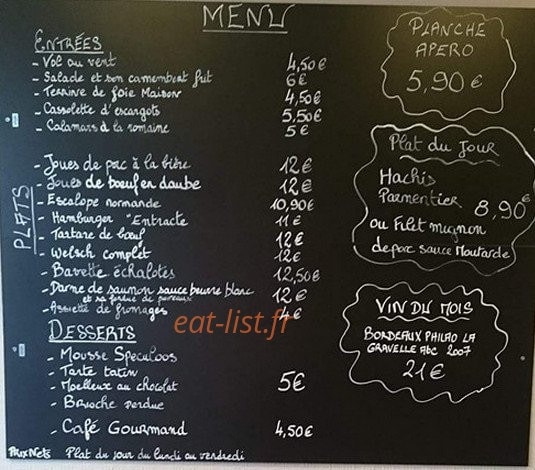 MENU
ENTRÉES
- Vol au vent 4,50€
- Salade et son camembert frit 6€
- Terrine de foie Maison 4,50€
- Cassolette d'escargots 5,50€
- Calamars à la romaine 5€
PLATS
- Joues de porc à la bière 12€
- Joues de boeuf en daube 12€
- Escalope normande 10,90€
- Hamburger "Entracte 11€
- Tartare de bœuf 12€
- Welsch complet 12€
- Bavette échalotes 12,50€
- Darne de saumon sauce beurre blanc 12€
et sa fondue de poireaux
- Assiette de fromages 4€
DESSERTS
- Mousse Speculoos
- Tarte tatin
- Moelleux au chocolat 5€
- Brioche perdue
- Café Gourmand 4,50€
Prix Nets Plat du jour du lundi au vendredi
PLANCHE
APERO
5,90€
Plat du Jour
Hachis
Parmentier 8,90€
ou Filet mignon
de porc sauce Moutarde
VIN DU MOIS
BORDEAUX PHILAO LA
GRAVELLE ABC 2007
21€
eat-list.fr